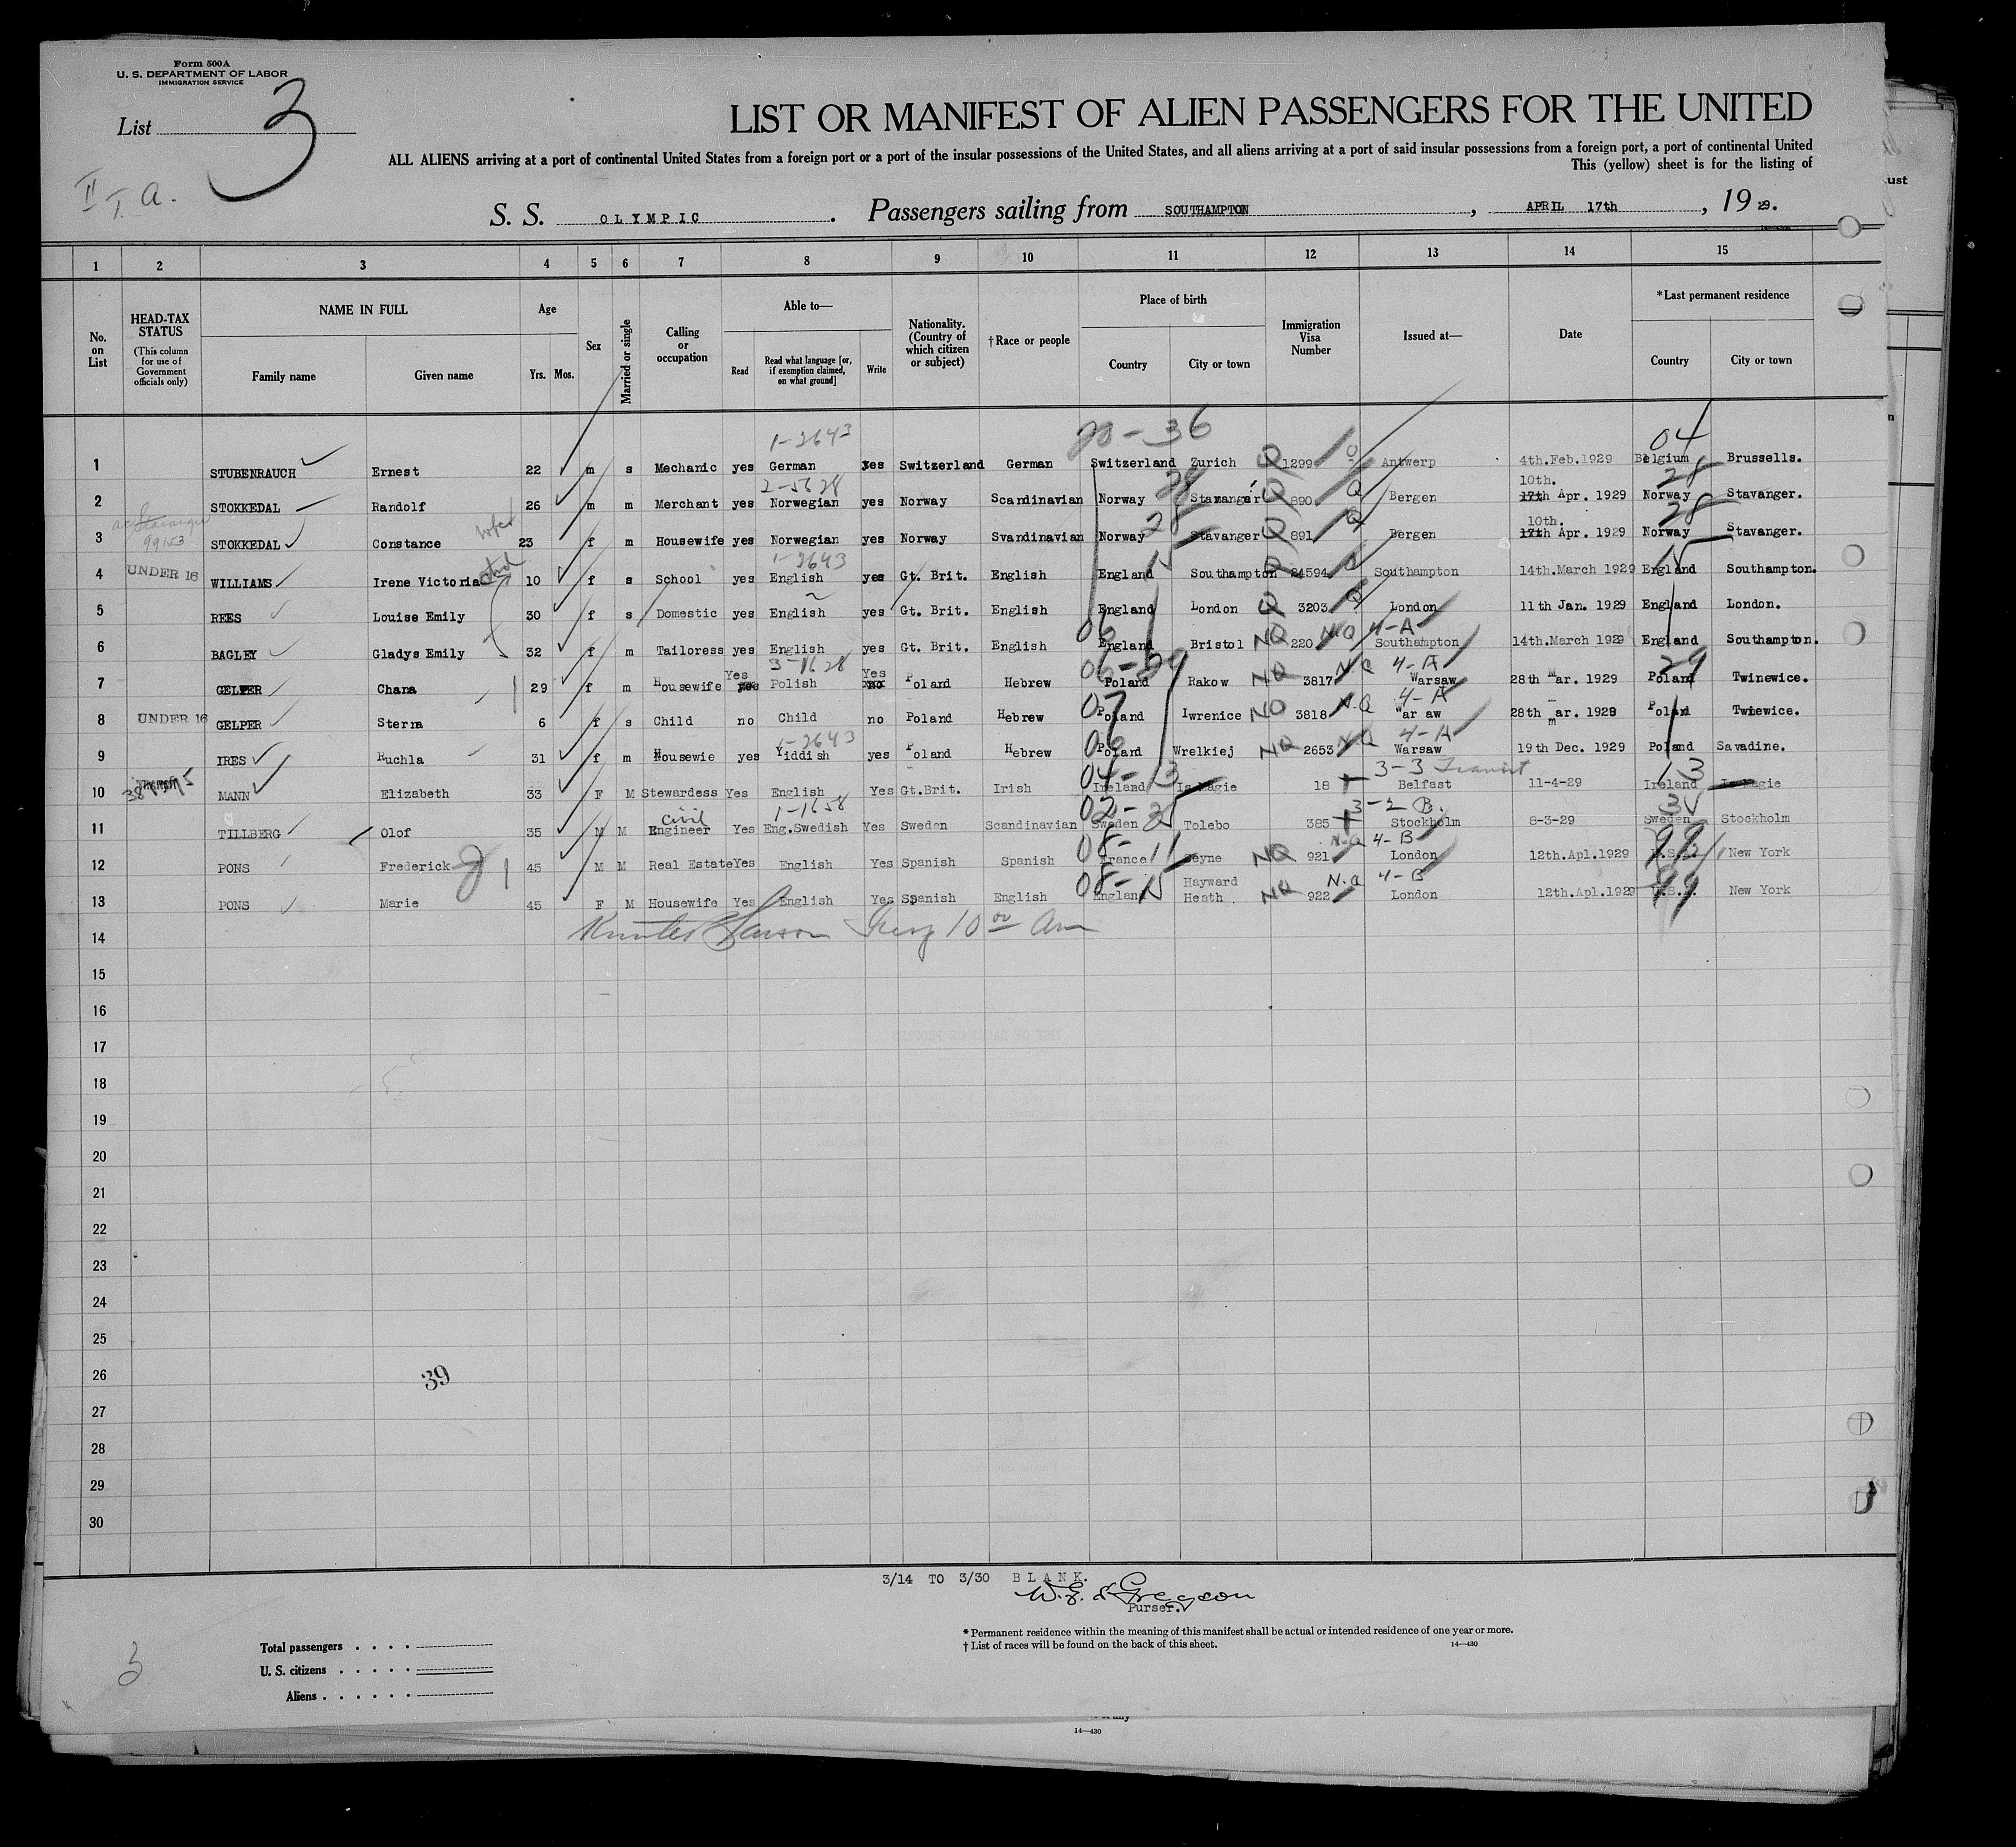 Form 500A
U. S. DEPARTMENT OF LABOR
IMMIGRATION SERVICE
List 3
II T. a.
LIST OR MANIFEST OF ALIEN PASSENGERS FOR THE UNITED
ALL ALIENS arriving at a port of continental United States from a foreign port or a port of the insular possessions of the United States, and all aliens arriving at a port of said insular possessions from a foreign port, a port of continental United
This (yellow) sheet is for the listing of
S. S. OLYMPIC. Passengers sailing from SOUTHAMPTON, APRIL 17th, 19 29.
1 2 3 4 5 6 7 8 9 10 11 12 13 14 15
No. on List
HEAD-TAX STATUS
(This column for use of Government officials only)
NAME IN FULL
Family name Given name
Age
Yrs. Mos.
Sex
Married or single
Calling or occupation
Able to—
Read Read what language [or, if exemption claimed, on what ground] Write
Nationality. (Country of which citizen or subject)
† Race or people
Place of birth
Country City or town
Immigration Visa Number
Issued at—
Date
* Last permanent residence
Country City or town
1-2643 20-36 04
1 STUBENRAUCH Ernest 22 m s Mechanic yes German yes Switzerland German Switzerland Zurich Q 1299 Q Antwerp 4th.Feb.1929 Belgium Brussells.
2-5628 28 10th. 28
2 STOKKEDAL Randolf 26 m m Merchant yes Norwegian yes Norway Scandinavian Norway Stavanger Q 890 Q Bergen 17th Apr. 1929 Norway Stavanger.
99153 wife 28 10th. 28
3 STOKKEDAL Constance 23 f m Housewife yes Norwegian yes Norway Svandinavian Norway Stavanger Q 891 Q Bergen 17th Apr. 1929 Norway Stavanger.
1-2643 15 15
4 UNDER 16 WILLIAMS Irene Victoria 10 f s School yes English yes Gt. Brit. English England Southampton Q 24594 Q Southampton 14th.March 1929 England Southampton.
5 REES Louise Emily 30 f s Domestic yes English yes Gt. Brit. English England London Q 3203 Q London 11th Jan. 1929 England London.
06 4-A
6 BAGLEY Gladys Emily 32 f m Tailoress yes English yes Gt. Brit. English England Bristol NQ 220 N.Q Southampton 14th.March 1929 England Southampton.
Yes 3-1628 Yes 06-29 4-A 29
7 GELPER Chana 29 f m Housewife yes Polish no Poland Hebrew Poland Rakow NQ 3817 N.Q Warsaw 28th Mar. 1929 Poland Twinewice.
07 4-A
8 UNDER 16 GELPER Sterna 6 f s Child no Child no Poland Hebrew Poland Iwrenice NQ 3818 N.Q War aw 28th mar. 1929 Poland Twiewice.
1-2643 06 4-A
9 IRES Ruchla 31 f m Housewie yes Yiddish yes Poland Hebrew Poland Wrelkiej NQ 2653 NQ Warsaw 19th Dec. 1929 Poland Savadine.
04-13 3-3 Transit 13
10 MANN Elizabeth 33 F M Stewardess Yes English Yes Gt.Brit. Irish Ireland Is Magie 18 Belfast 11-4-29 Ireland Is Magie
Civil 1-1658 02-35 3-2 B. 35
11 TILLBERG Olof 35 M M Engineer Yes Eng.Swedish Yes Sweden Scandinavian Sweden Tolebo 385 Stockholm 8-3-29 Sweden Stockholm
08-11 N.Q 4-B 99
12 PONS Frederick 45 M M Real Estate Yes English Yes Spanish Spanish France Seyne NQ 921 London 12th.Apl.1929 U.S.A. New York
08-15 N.Q 4-B 99
13 PONS Marie 45 F M Housewife Yes English Yes Spanish English England Hayward Heath NQ 922 London 12th.Apl.1929 U.S.A. New York
14 10 00 Am
15
16
17
18
19
20
21
22
23
24
25
26 39
27
28
29
30
3/14 TO 3/30 BLANK.
Purser.
Total passengers
U. S. citizens
Aliens
3
* Permanent residence within the meaning of this manifest shall be actual or intended residence of one year or more.
† List of races will be found on the back of this sheet.
14—430
14—430
ust